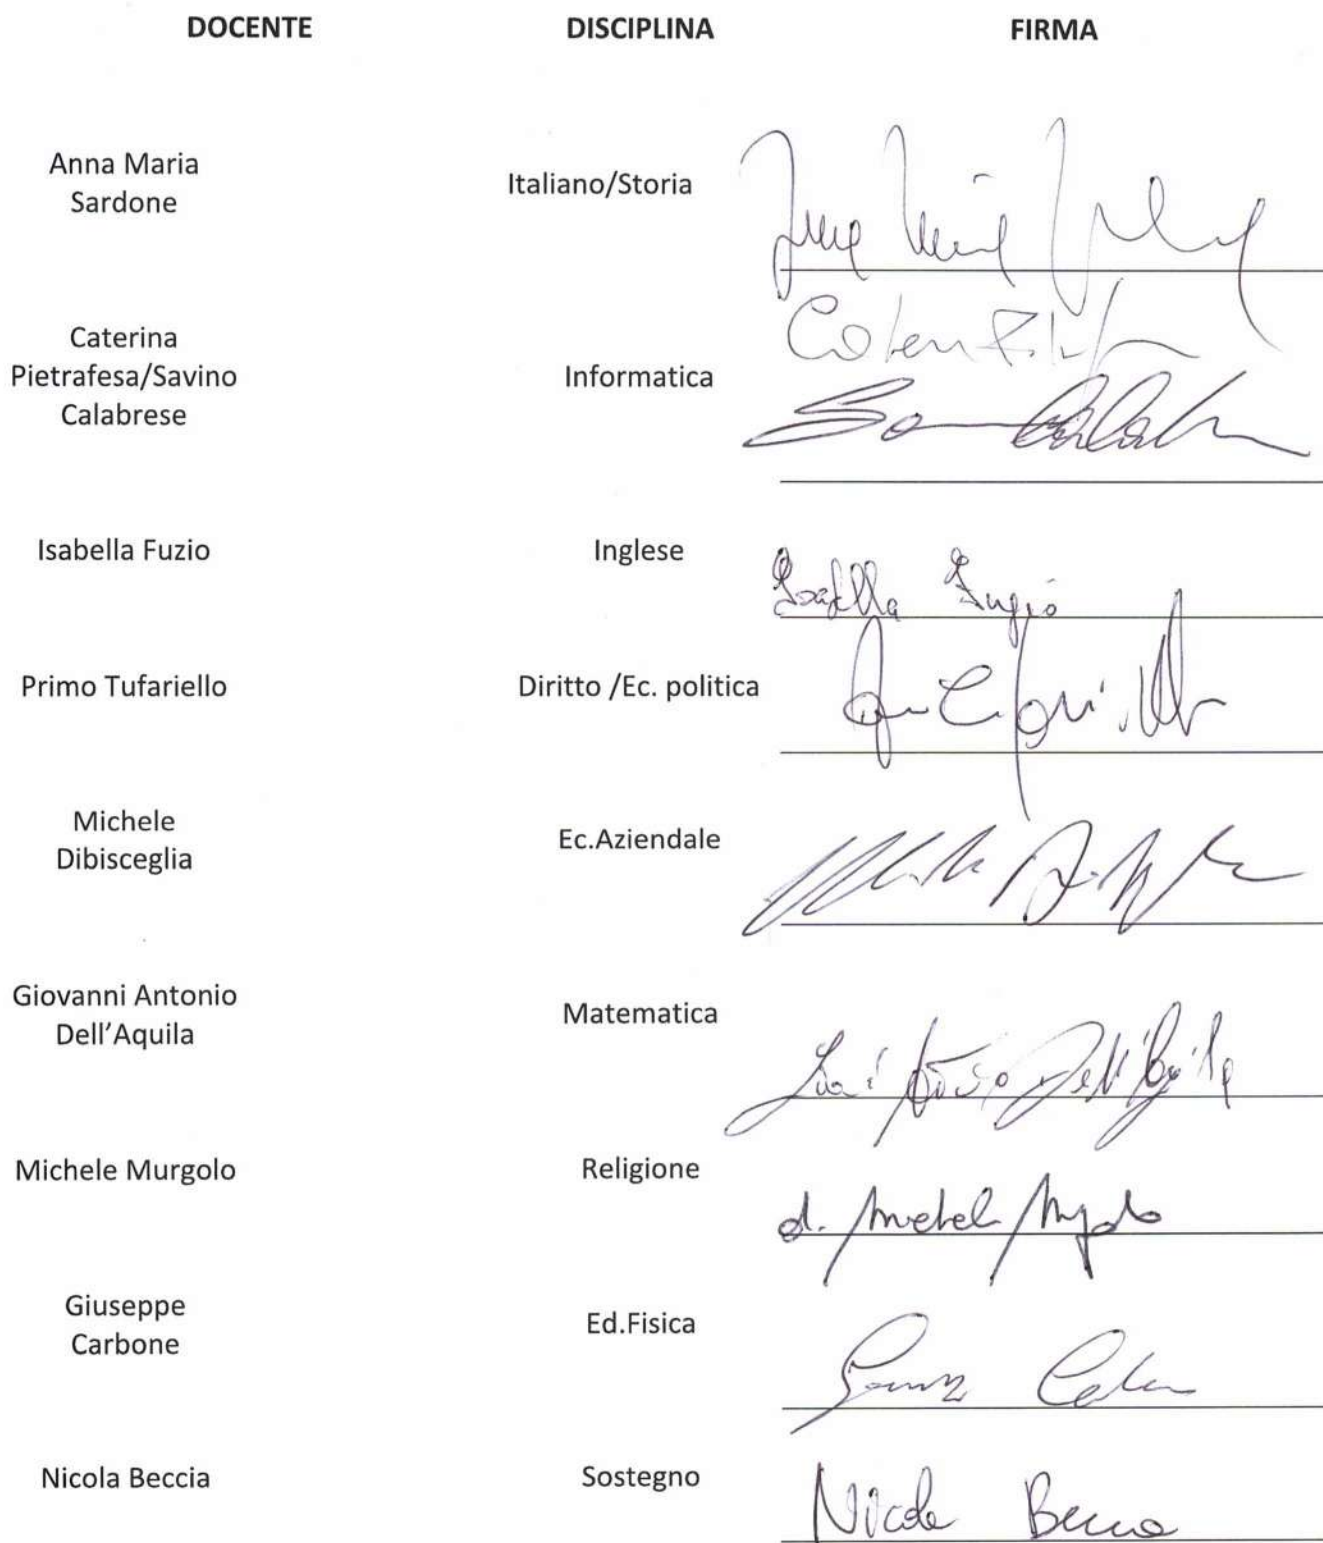 DOCENTE DISCIPLINA FIRMA
Anna Maria
Sardone
Italiano/Storia
Caterina
Pietrafesa/Savino
Calabrese
Informatica
Isabella Fuzio Inglese
Isabella Fuzio
Primo Tufariello Diritto /Ec. politica
Michele
Dibisceglia
Ec.Aziendale
Giovanni Antonio
Dell’Aquila
Matematica
Dell'Aquila
Michele Murgolo Religione
d. Michele Murgolo
Giuseppe
Carbone
Ed.Fisica
Nicola Beccia Sostegno
Nicola Beccia